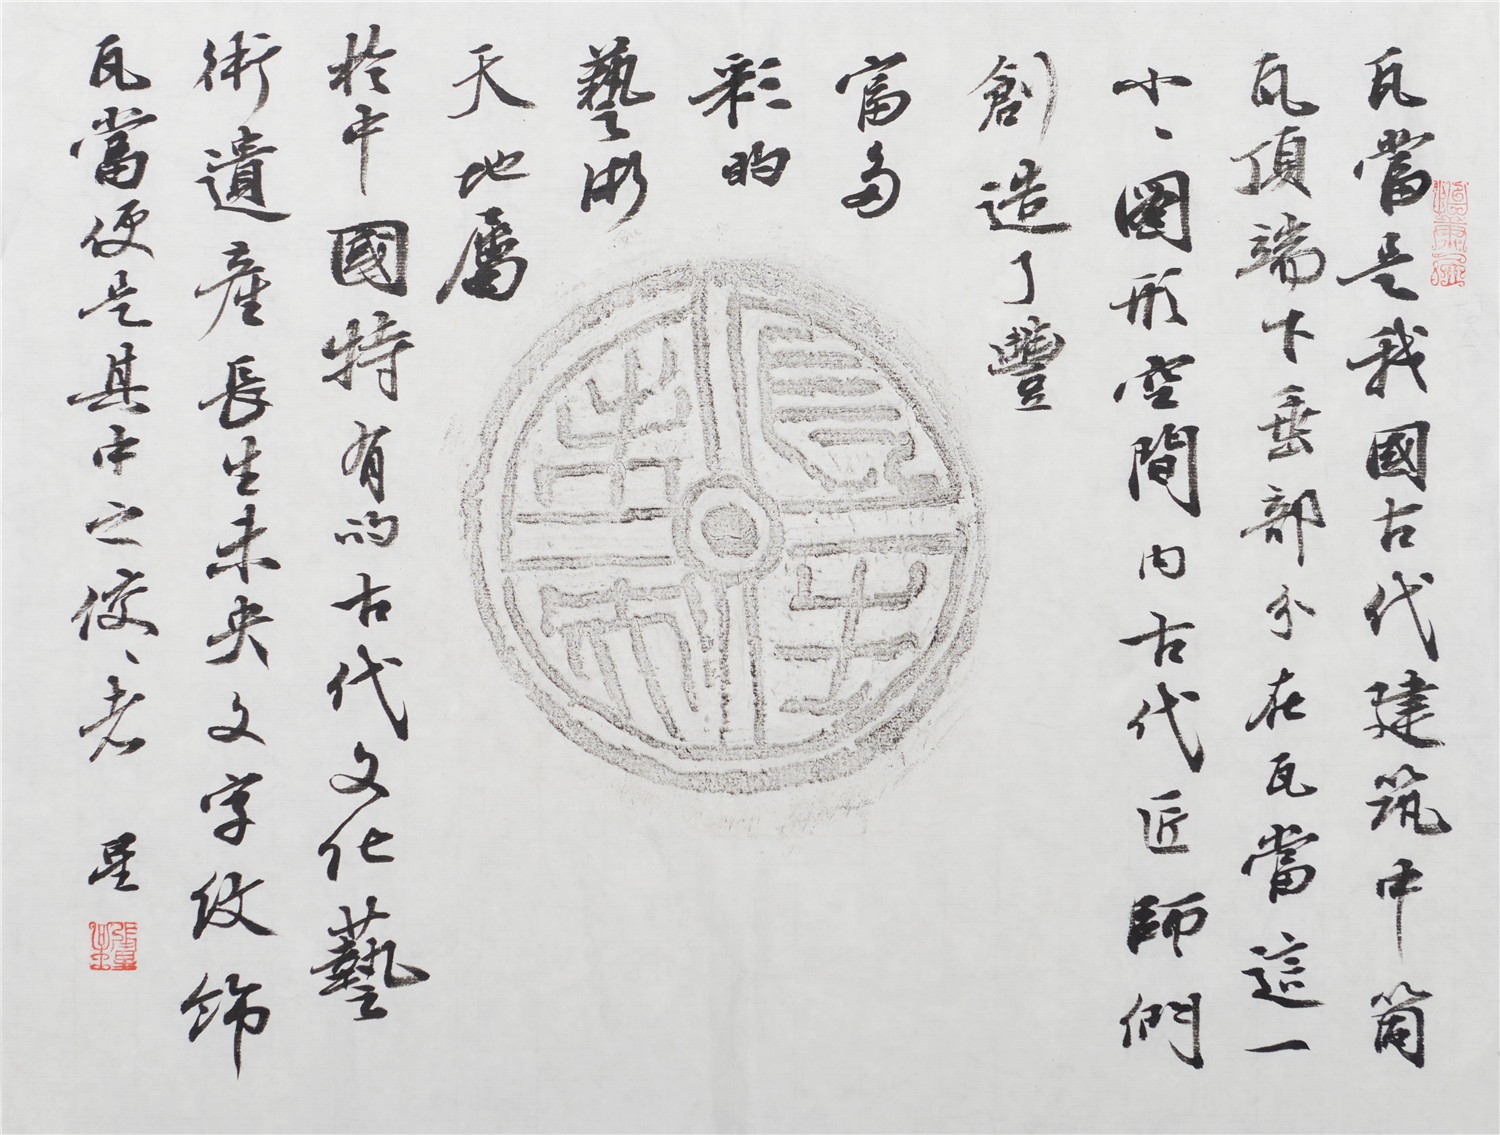 瓦當是我國古代建筑中筒
瓦頂端下垂部分在瓦當這一
小小圖形空間内古代匠師們
創造了豐
富多
彩的
藝術
天地屬
於中國特有的古代文化藝
術遺産長生未央文字纹飾
瓦當便是其中之佼佼者
星
長生未央